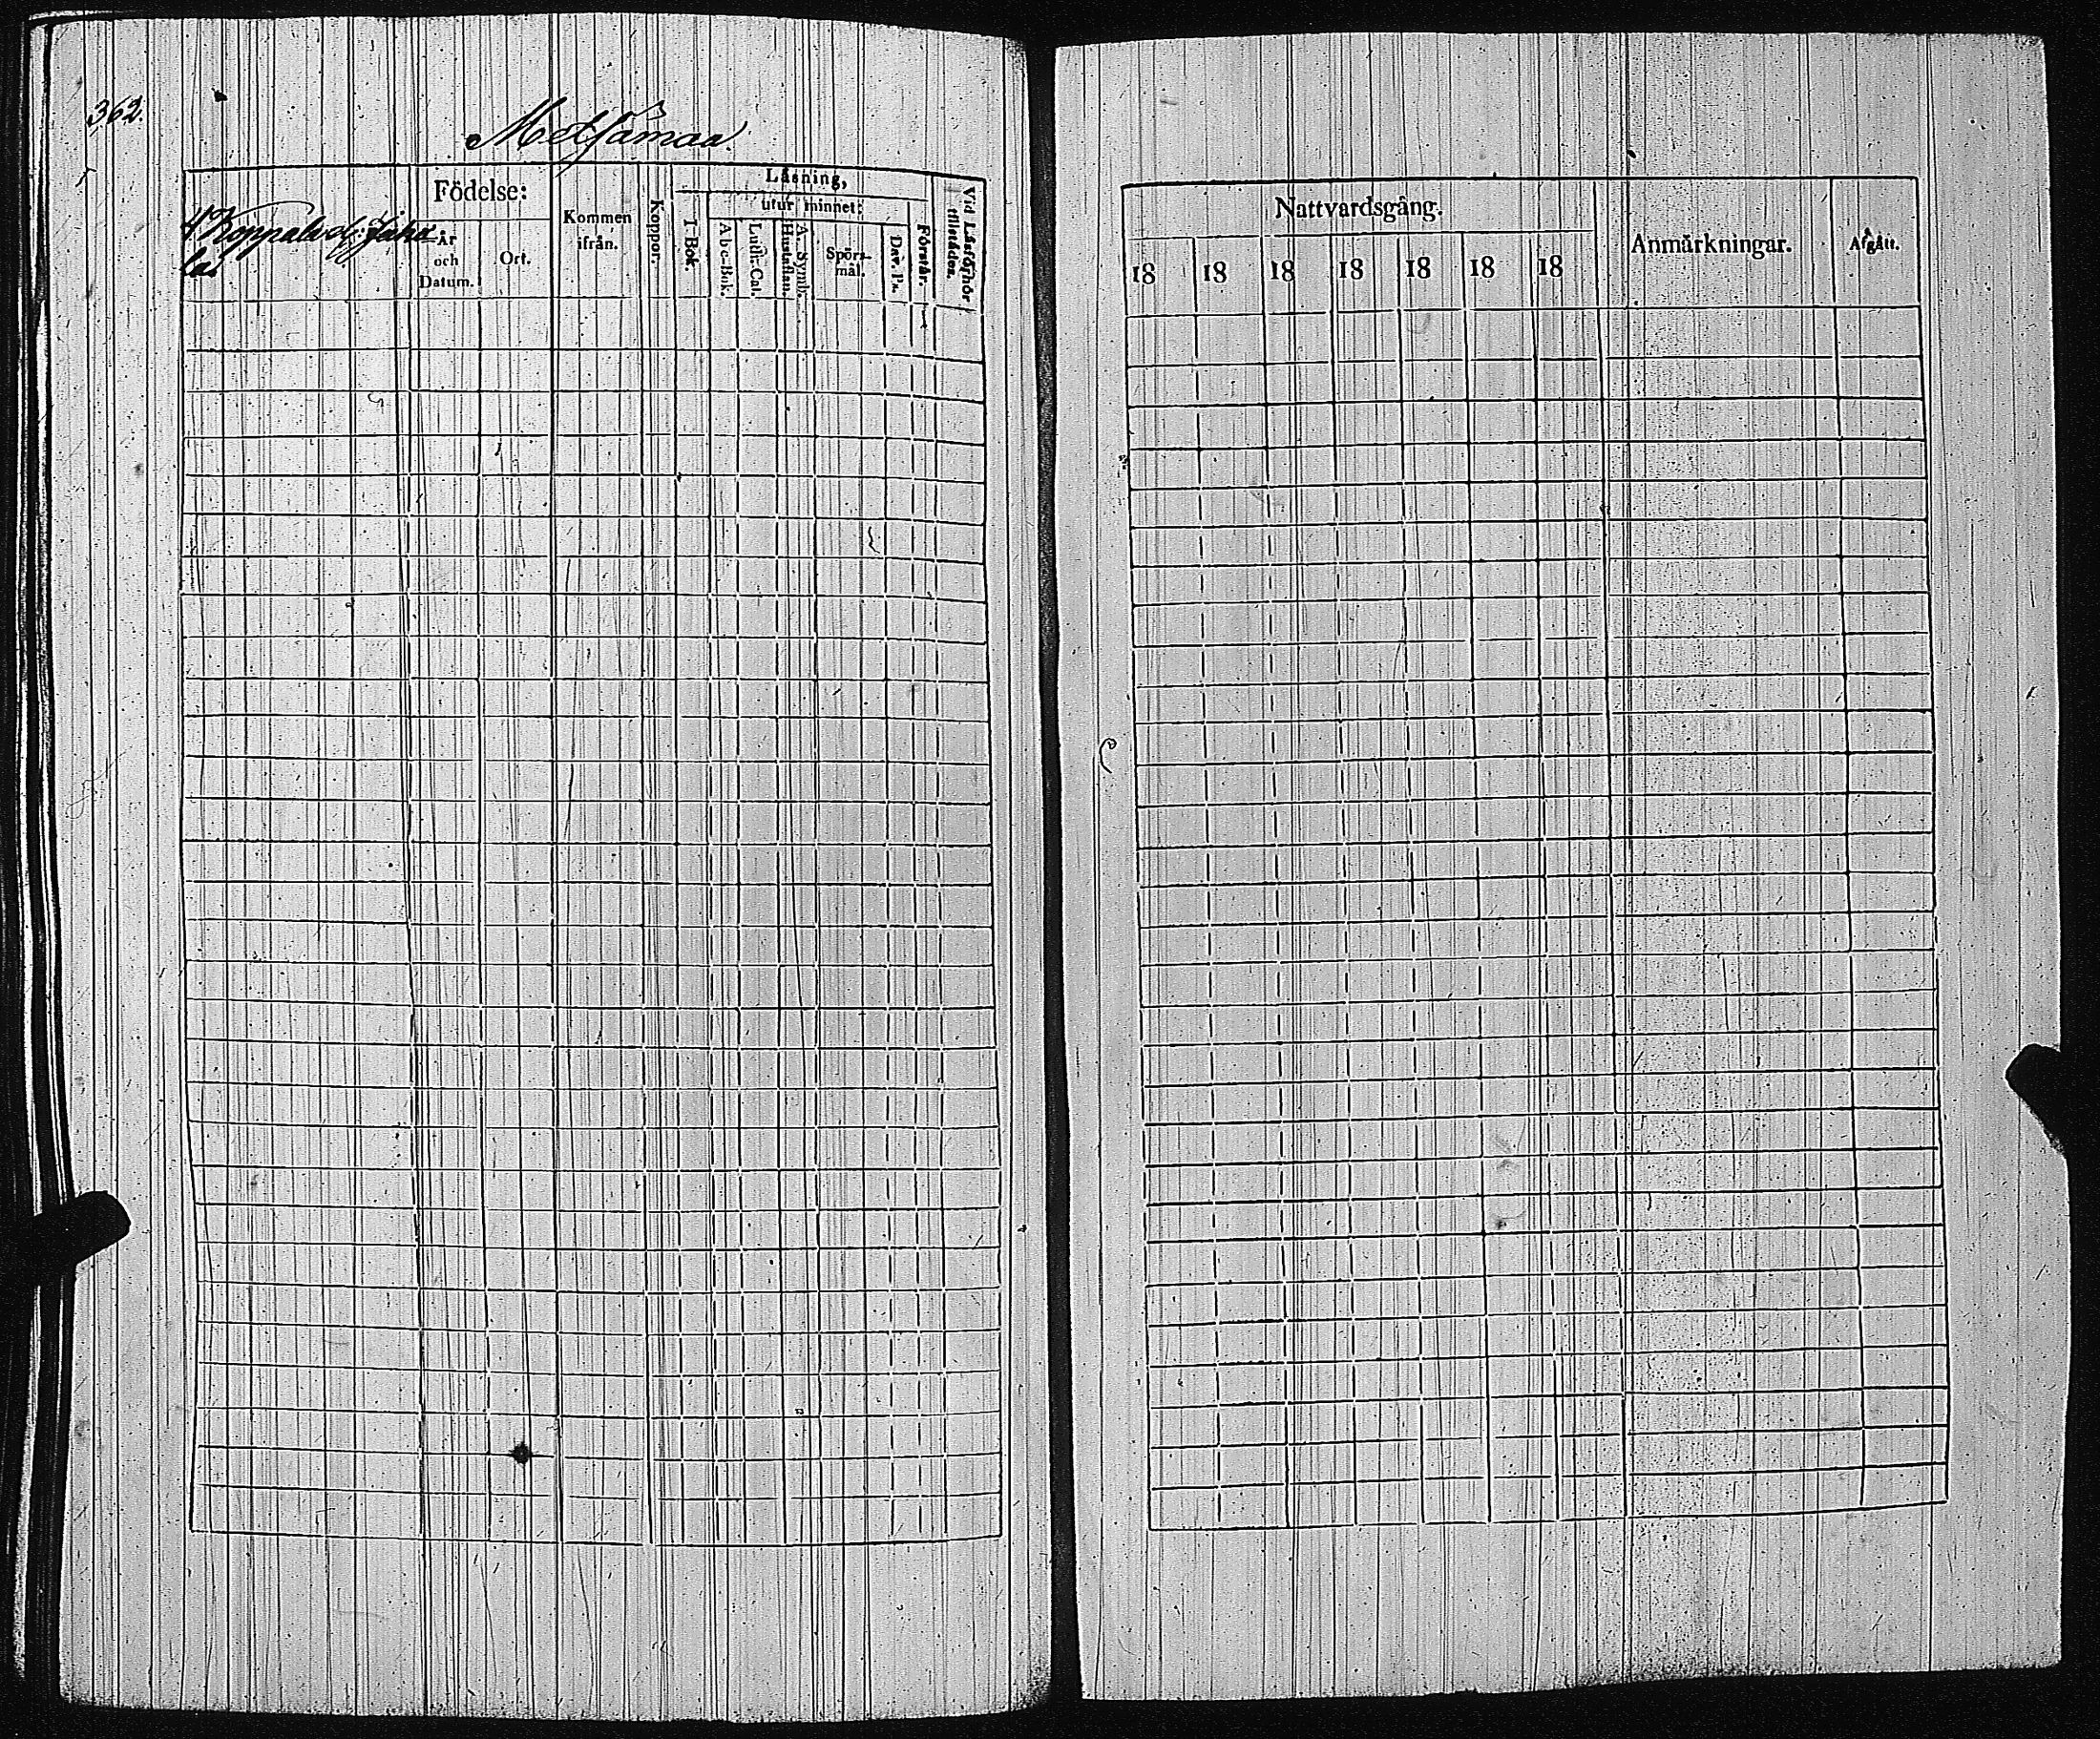 362.
Metsämaa
Födelse:
Kommen
ifrån.
Koppor.
Läsning,
I. Bok.
utur minnet:
Abc-Bok.
Luth. Cat.
A. Symb.
Hustaflan.
Spörs-
mål.
Dav. Ps.
Förstår.
Vid Läsförhör
tillstädes.
4 Koppala
la
År
och
Datum.
Ort.
Nattvardsgång.
18 18 18 18 18 18 18
Anmärkningar.
Afgått.